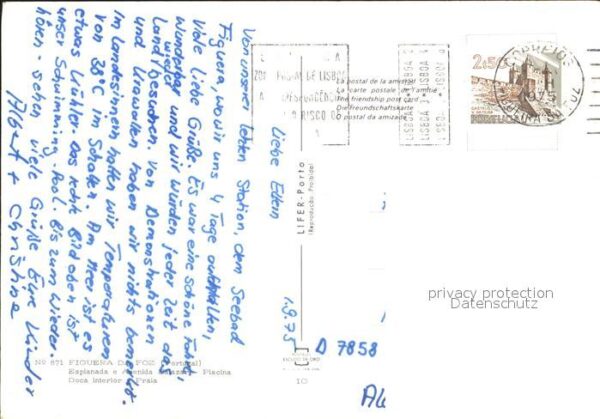 Liebe Eltern
Von unserer letzten Station, dem Seebad
Figuera, wo wir uns 4 Tage aufhalten,
Viele liebe Grüße. Es war eine schöne Fahrt,
Wunderbar und wir würden jeder Zeit das
wieder
Land bereisen. Von Demonstrationen
und Unruhen haben wir nichts bemerkt.
Im Landesinnern hatten wir Temperaturen
von 38°C im Schatten. Am Meer ist es
etwas kühler. Das rechte Bild oben ist
unser Schwimming-Pool. Bis zum Wieder-
hören - sehen viele Grüße Eure Kinder
Albert + Christine
1.9.75
D 7858
La postal de la amistad
La carte postale de l'amitié
The friendship post card
Die freundschaftskarte
postal da amizade
LIFER-Porto
(Reprodução Proibida)
2$50
CORREIOS
PORTUGAL
LISBOA
Nº 871 FIGUEIRA DA FOZ (Portugal)
Esplanada e Avenida Salazar - Piscina
Doca interior - Praia
10
privacy protection
Datenschutz